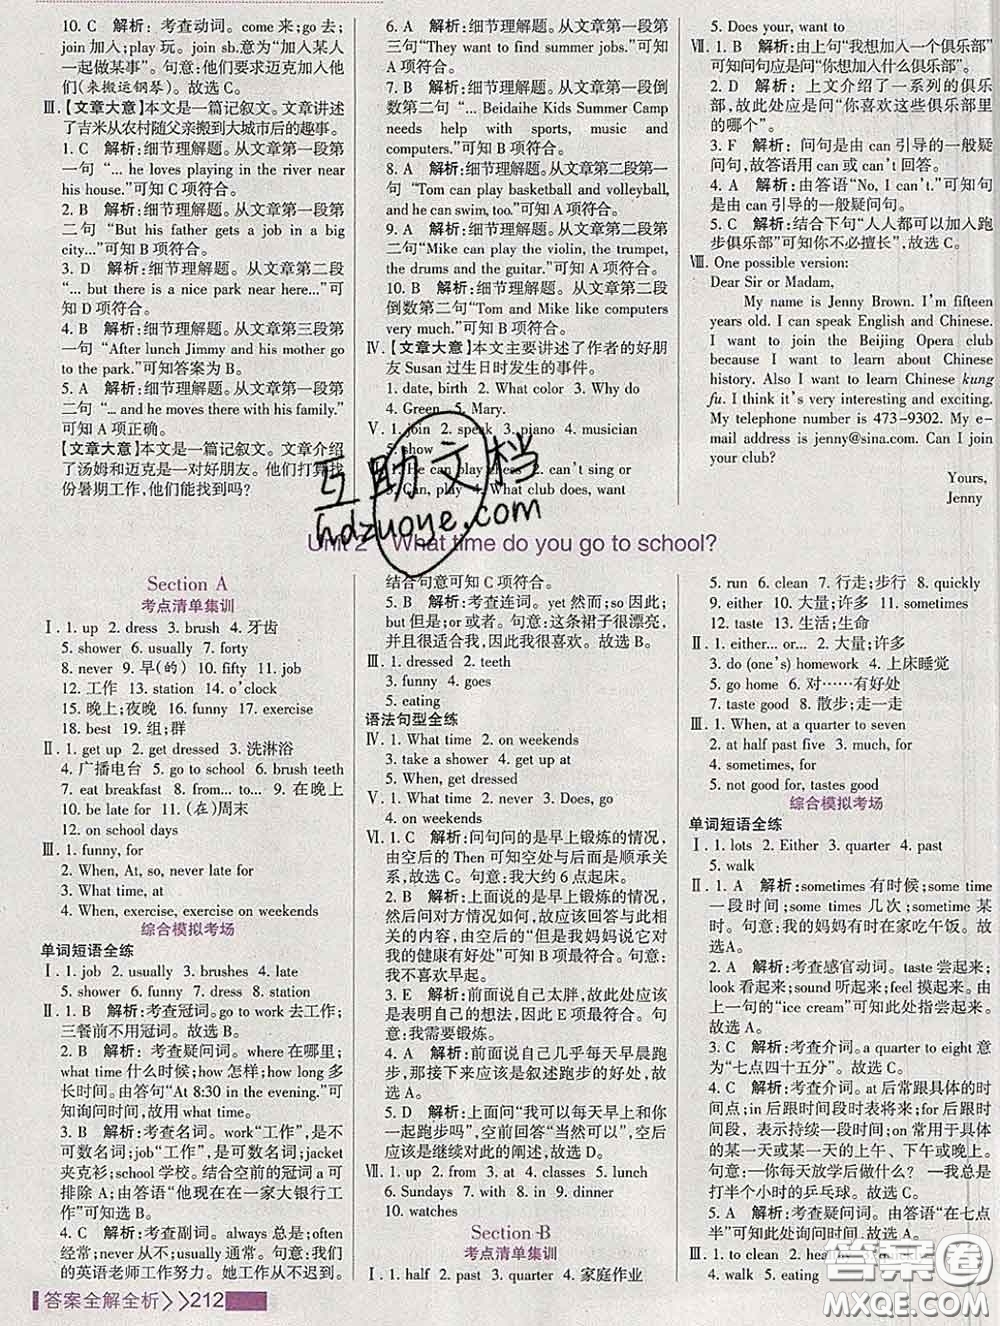 10. C 解析:考查动词。come 来;go 去;
join 加入;play 玩。join sb.意为“加入某人
一起做某事”。句意:他们要求迈克加入他
们(来搬运钢琴)。故选 C。
Ⅲ.【文章大意】本文是一篇记叙文。文章讲述
了吉米从农村随父亲搬到大城市后的趣事。
1. C 解析:细节理解题。从文章第一段第
一句 “... he loves playing in the river near
his house.”可知 C 项符合。
2. B 解析:细节理解题。从文章第一段第
二句 “But his father gets a job in a big
city...”可知 B 项符合。
3. D 解析:细节理解题。从文章第二段
“but there is a nice park near here...”可知
D 项符合。
4. B 解析:细节理解题。从文章第三段第
一句 “After lunch Jimmy and his mother go
to the park.”可知答案为 B。
5. A 解析:细节理解题。从文章第一段第
二句 “... and he moves there with his family.”
可知 A 项正确。
【文章大意】本文是一篇记叙文。文章介绍
了汤姆和迈克是一对好朋友。他们打算找
份暑期工作,他们能找到吗?
6. A 解析:细节理解题。从文章第一段第
三句“They want to find summer jobs.”可知
A 项符合。
7. B 解析:细节理解题。从文章第一段倒
数第二句 “... Beidaihe Kids Summer Camp
needs help with sports, music and
computers.”可知 B 项符合。
8. A 解析:细节理解题。从文章第二段第一
句 “Tom can play basketball and volleyball,
and he can swim, too.”可知 A 项符合。
9. A 解析:细节理解题。从文章第二段第
二句“Mike can play the violin, the trumpet,
the drums and the guitar.”可知 A 项符合。
10. B 解析:细节理解题。从文章第二段
倒数第二句“Tom and Mike like computers
very much.”可知 B 项符合。
Ⅳ.【文章大意】本文主要讲述了作者的好朋
友 Susan 过生日时发生的事件。
1. date, birth 2. What color 3. Why do
4. Green 5. Mary.
Ⅴ. 1. join 2. speak 3. piano 4. musician
5. show
1. He can play chess 2. can't sing or
3. Can, play 4. What club does, want
5. Does your, want to
Ⅶ. 1. B 解析:由上句“我想加入一个俱乐部”
可知问句应是问“你想加入什么俱乐部”。
2. D 解析:上文介绍了一系列的俱乐
部,故此处应是问“你喜欢这些俱乐部里
的哪个”。
3. F 解析:问句是由 can 引导的一般疑
问句,故答语用 can 或 can't 回答。
4. A 解析:由答语“No, I can't.”可知句
是由 can 引导的一般疑问句。
5. C 解析:结合下句“人人都可以加入跑
步俱乐部”可知你不必擅长”,故选 C。
Ⅷ. One possible version:
Dear Sir or Madam,
My name is Jenny Brown. I'm fifteen
years old. I can speak English and Chinese.
I want to join the Beijing Opera club
because I want to learn about Chinese
history. Also I want to learn Chinese kung
fu. I think it's very interesting and exciting.
My telephone number is 473-9302. My e-
mail address is jenny@sina.com. Can I join
your club?
Yours,
Jenny
互助文档
hdzuoye.com
Unit 2 What time do you go to school?
Section A
考点清单集训
Ⅰ. 1. up 2. dress 3. brush 4. 牙齿
5. shower 6. usually 7. forty
8. never 9. 早(的) 10. fifty 11. job
12. 工作 13. station 14. o'clock
15. 晚上;夜晚 16. funny 17. exercise
18. best 19. 组;群
Ⅱ. 1. get up 2. get dressed 3. 洗淋浴
4. 广播电台 5. go to school 6. brush teeth
7. eat breakfast 8. from... to... 9. 在晚上
10. be late for 11. (在)周末
12. on school days
Ⅲ. 1. funny, for
2. When, At, so, never late for
3. What time, at
4. When, exercise, exercise on weekends
综合模拟考场
单词短语全练
Ⅰ. 1. job 2. usually 3. brushes 4. late
5. shower 6. funny 7. dress 8. station
Ⅱ. 1. B 解析:考查冠词。go to work 去工作;
三餐前不用冠词。故选 B。
2. B 解析:考查疑问词。where 在哪里;
what time 什么时候;how 怎样;how long 多
长时间。由答句“At 8:30 in the evening.”可
知询问时间,故用 what time。
3. B 解析:考查名词。work“工作”,是不
可数名词;job“工作”,是可数名词;jacket
夹克衫;school 学校。结合空前的冠词 a 可
排除 A;由答语“他现在在一家大银行工
作”可知选 B。
4. C 解析:考查副词。always 总是;often
经常;never 从不;usually 通常。句意:我们
的英语老师工作努力。她工作从不迟到。
结合句意可知 C 项符合。
5. B 解析:考查连词。yet 然而;so 因此;
but 但是;or 或者。句意:这条裙子很漂亮,
并且很适合我,因此我很喜欢。故选 B。
Ⅲ. 1. dressed 2. teeth
3. funny 4. goes
5. eating
语法句型全练
Ⅳ. 1. What time 2. on weekends
3. take a shower 4. get up at
5. When, get dressed
Ⅴ. 1. What time 2. never 3. Does, go
4. on weekends
Ⅵ. 1. C 解析:问句问的是早上锻炼的情况,
由空后的 Then 可知空处与后面是顺承关
系,故选 C。句意:我大约 6 点起床。
2. B 解析:上面说的是早上锻炼的情况,
然后问对方情况如何,故应该回答与此相
关的内容,由空后的“但是我妈妈说它对
我的健康有好处”可知 B 项最符合。句意:
我不喜欢早起。
3. E 解析:前面说自己太胖,故此处应该
是表自己的想法,因此 E 项最符合。句
意:我需要锻炼。
4. A 解析:前面说自己几乎每天早晨跑
步,那接下来应该是叙述跑步的好处,故
选 A。
5. D 解析:上面问“我可以每天早上和你
一起跑步吗”,空前回答“当然可以”,空后
应该是继续对此的阐述,故选 D。
Ⅶ. 1. up 2. from 3. at 4. classes 5. lunch
6. Sundays 7. with 8. in 9. dinner
10. watches
Section B
考点清单集训
Ⅰ. 1. half 2. past 3. quarter 4. 家庭作业
5. run 6. clean 7. 行走;步行 8. quickly
9. either 10. 大量;许多 11. sometimes
12. taste 13. 生活;生命
Ⅱ. 1. either... or... 2. 大量;许多
3. do (one's) homework 4. 上床睡觉
5. go home 6. 对……有好处
7. taste good 8. 散步;走一走
Ⅲ. 1. When, at a quarter to seven
2. at half past five 3. much, for
4. sometimes, for
5. not good for, tastes good
综合模拟考场
单词短语全练
Ⅰ. 1. lots 2. Either 3. quarter 4. past
5. walk
Ⅱ. 1. A 解析:sometimes 有时候;some time
一段时间;some times 几次;sometime 某
时。句意:我的妈妈有时在家吃午饭。故
选A。
2. A 解析:考查感官动词。taste 尝起来;
look 看起来;sound 听起来;feel 摸起来。由
上一句的“ice cream”可知此处指尝起来。
故选 A。
3. C 解析:考查介词。a quarter to eight 意
为“七点四十五分”。故选 C。
4. C 解析:考查介词。at 后常跟具体的时
间点;in 后跟时间段时表将来;for 后跟时间
段、表示持续一段时间;on 常用于具体
的某一天或某一天的上午、下午或晚上。
句意:—你每天放学后做什么? —我总是
打半个小时的乒乓球。故选 C。
5. A 解析:考查疑问词。由答语“在七点
半”可知此处询问时间。故选 A。
Ⅲ. 1. to clean 2.
4. walk 5. eating
答案全解全析>>212
答案圈
MXQE.COM